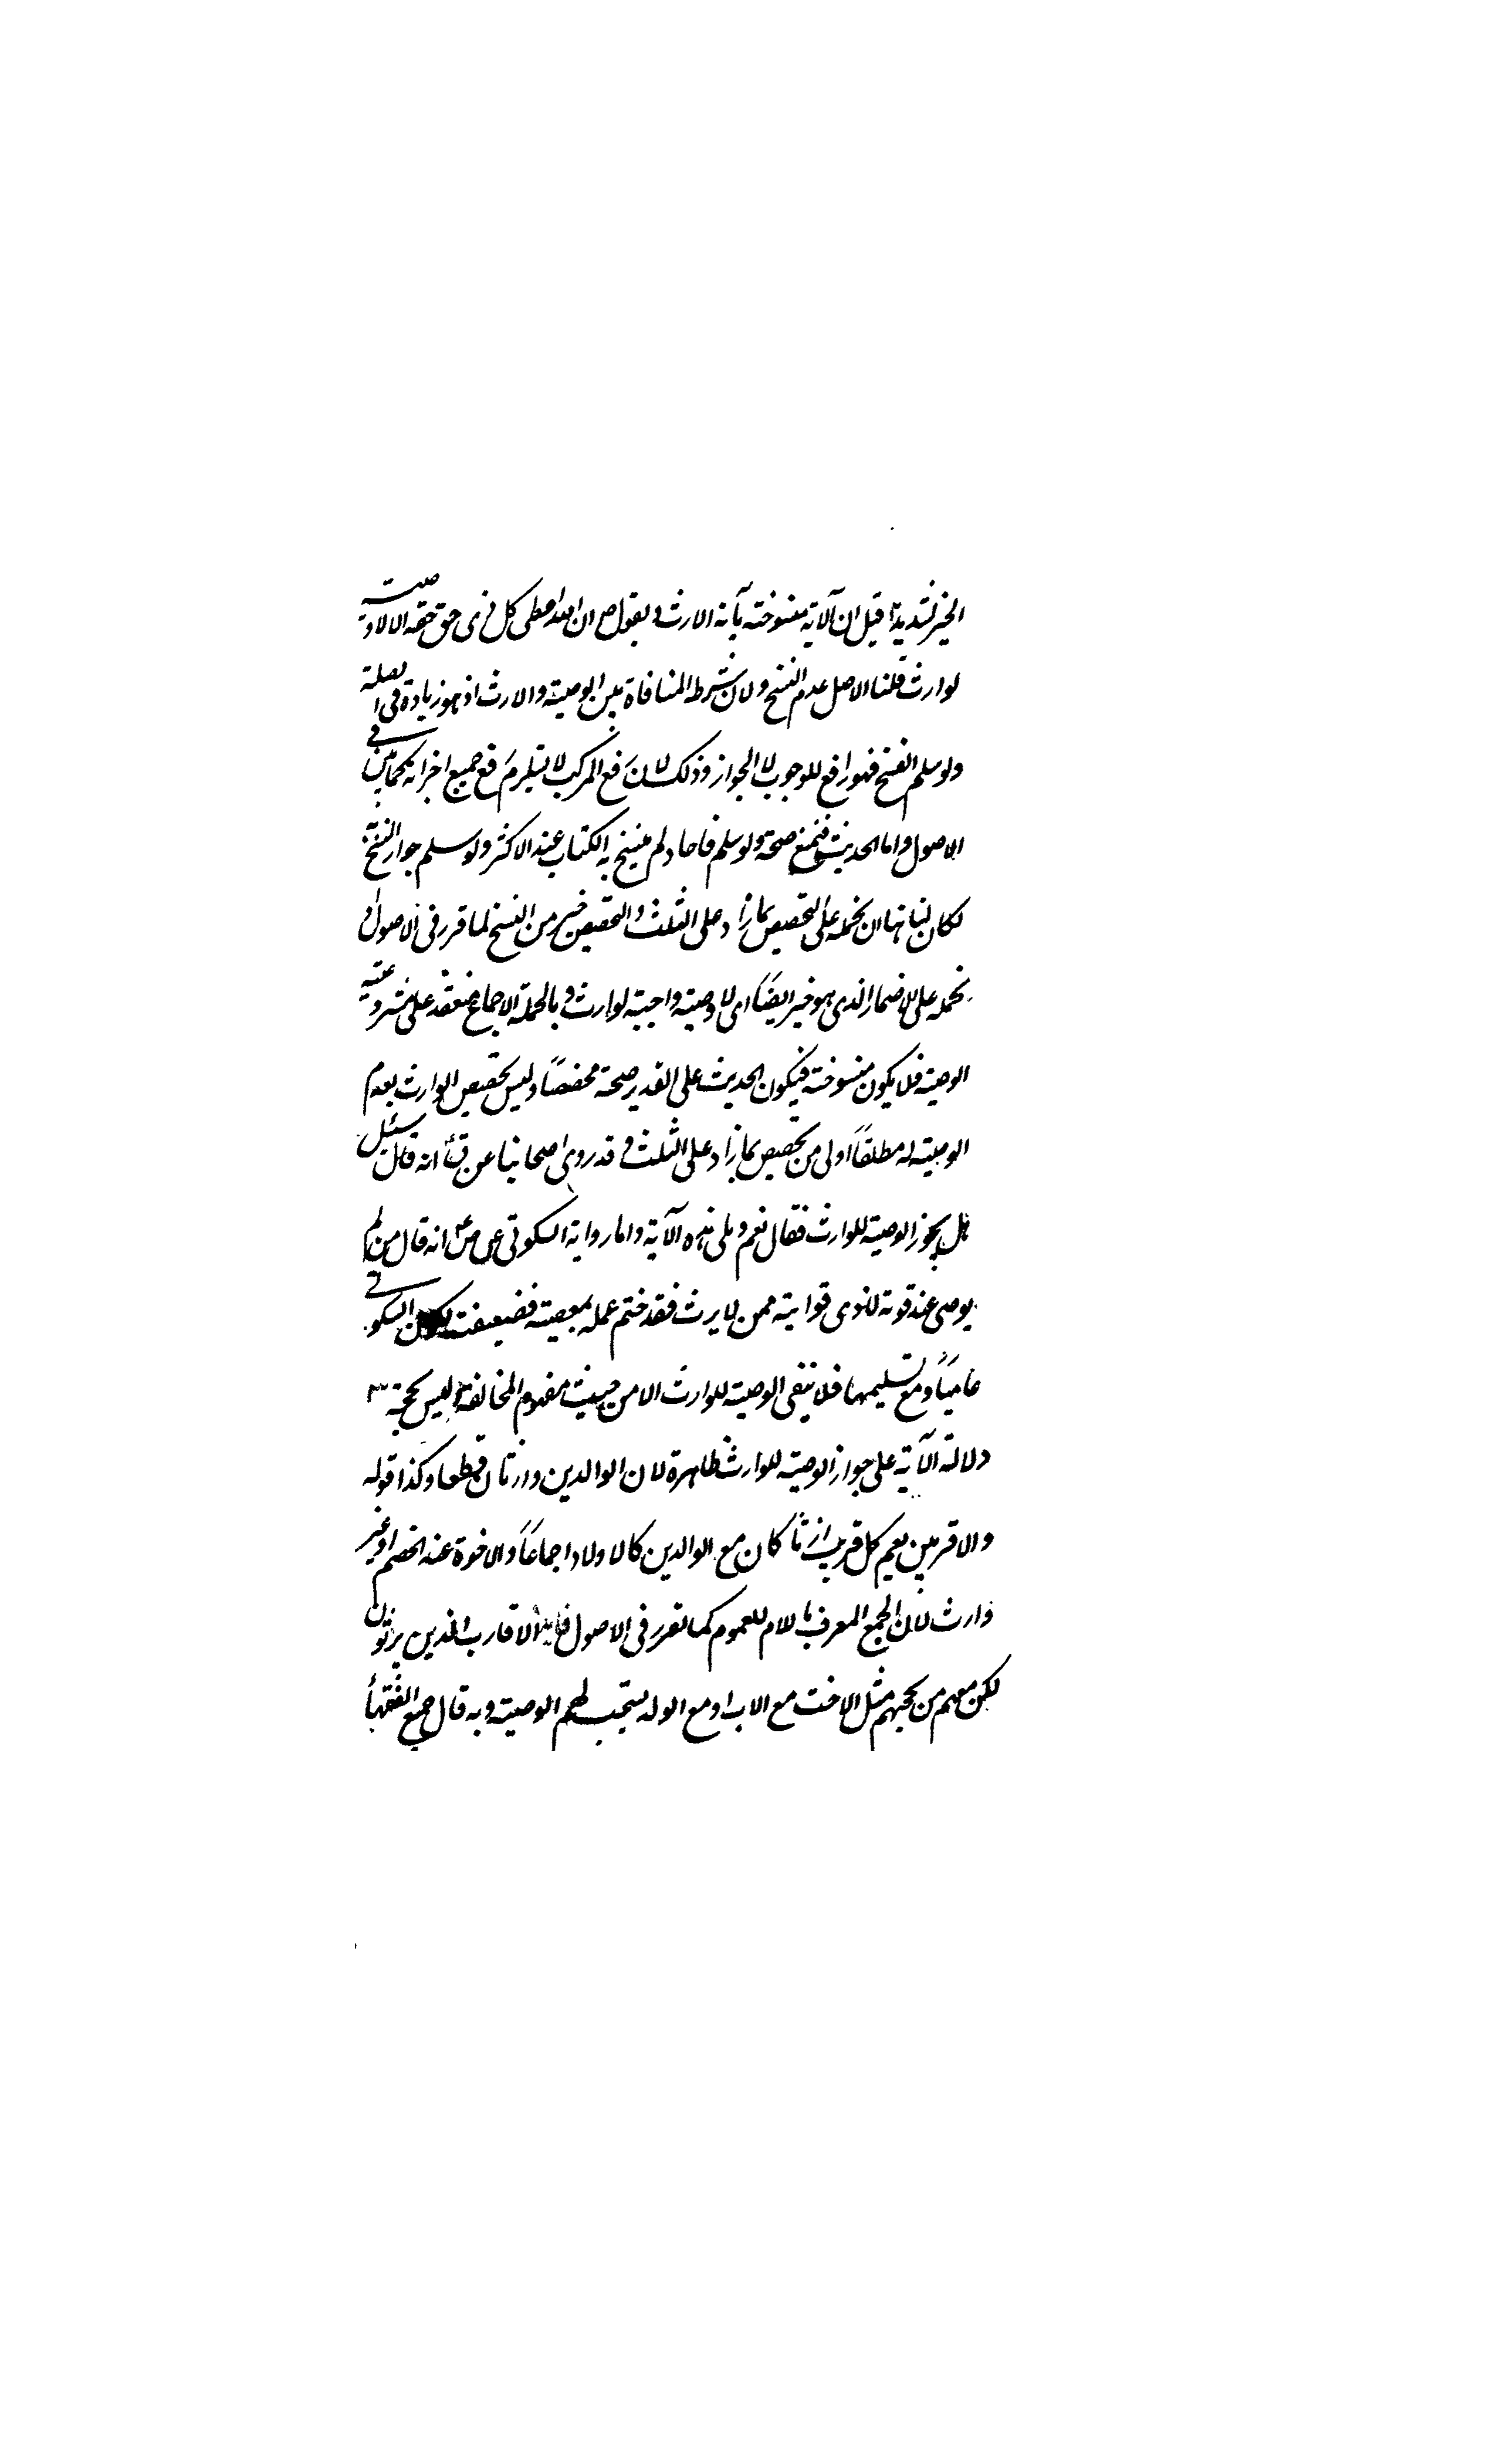 الخير لشديد قيل ان الآية منسوخة بآية الارث و بقوله ص ان الله اعطى كل ذى حق حقه الا لا وصية
لوارث قلنا الاصل عدم النسخ ولان شرطه المنافاة بين الوصية والارث اذ هو زيادة فى الصلة
ولو سلم النسخ فهو رافع للوجوب لا الجواز وذلك لان رفع المركب لا يستلزم رفع جميع اجزائه كما بين فى
الاصول واما الحديث فنمنع صحته ولو سلم فآحاد لم ينسخ به الكتاب عند الاكثر ولو سلم جواز النسخ به
لكان لنا هنا ان نحمله على التخصيص بما زاد على الثلث والتخصيص خير من النسخ لما قرر فى الاصول او
نحمله على الاضمار الذى هو خير ايضًا اى لا وصية واجبة لوارث وبالجملة الاجماع منعقد على مشروعية
الوصية فلا يكون منسوخة فيكون الحديث على تقدير صحته مخصصًا وليس تخصيص الوارث بعدم
الوصية له مطلقًا اولى من تخصيص بما زاد على الثلث و قد روى اصحابنا عن انه قال سئل
هل يجوز الوصية للوارث فقال نعم وتلى هذه الآية واما رواية السكونى عن انه قال من لم
يوص عند موته لذوى قرابته ممن لا يرث فقد ختم عمله بمعصية فضعيفة لكون السكونى
عاميًا ومع تسليمها فلا ينفى الوصية للوارث الا من حيث مفهوم المخالفة وليس بحجة
دلالة الآية على جواز الوصية للوارث ظاهرة لان الوالدين وارثان قطعا وكذا قوله
والاقربين يعم كل قريب ارثًا كان مع الوالدين كالاولاد اجماعًا والاخوة عند الخصم او غير
وارث لان الجمع المعرف باللام للعموم كما تقرر فى الاصول الاقارب الذين يرثون
لكن معهم من يحجبهم مثل الاخت مع الاب او مع الولد يستحب لهم الوصية وبه قال جميع الفقهاء